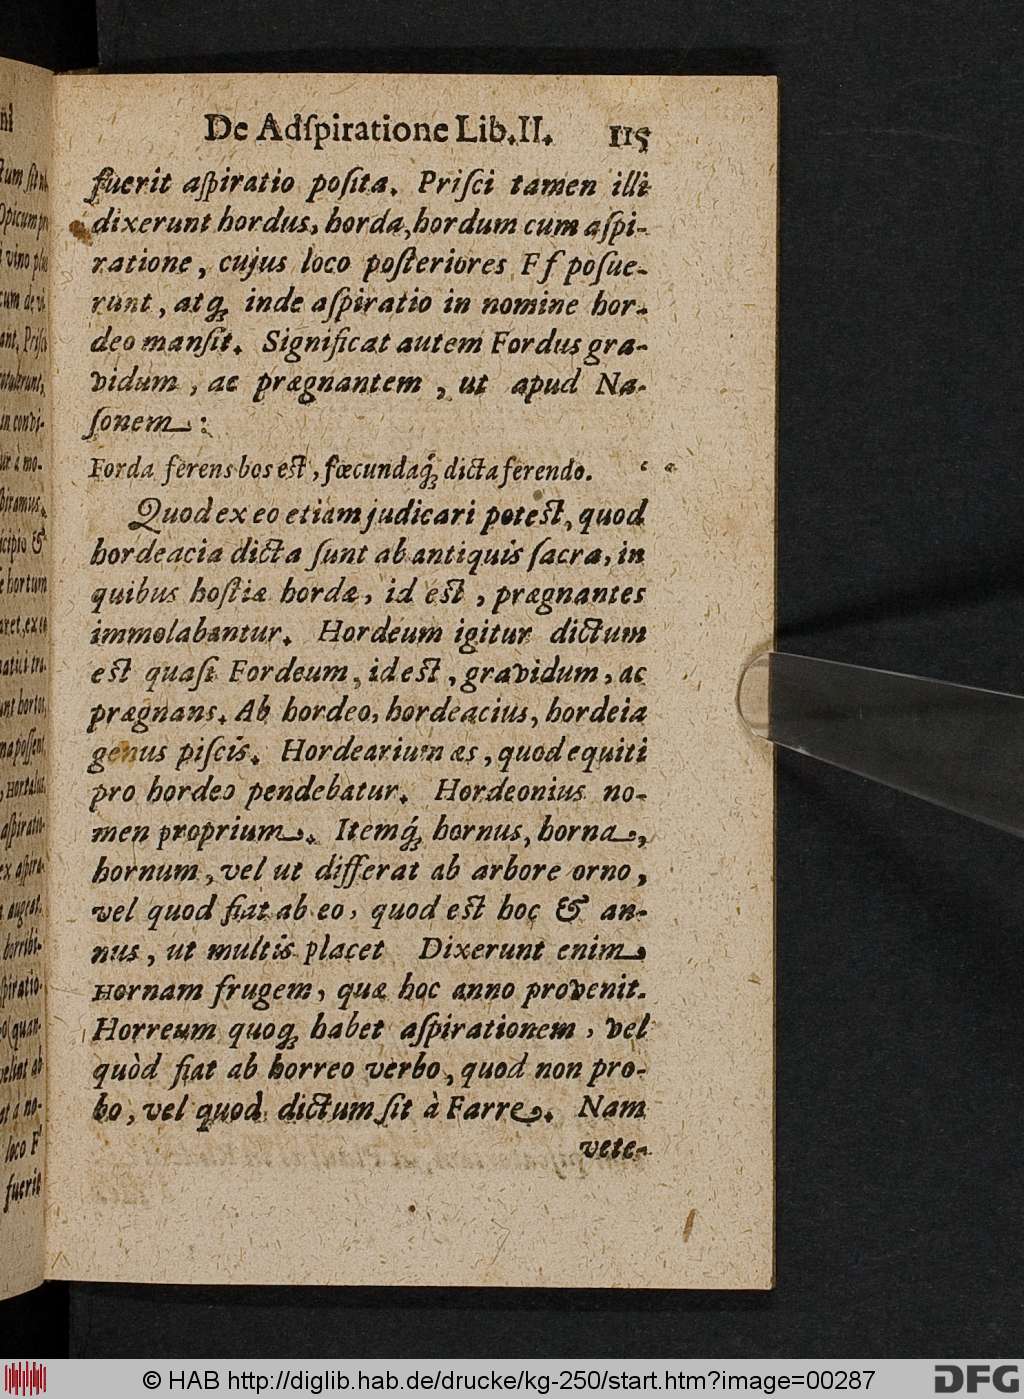 De Adſpiratione Lib. II. 115
fuerit aſpiratio poſita. Priſci tamen illi
dixerunt hordus, horda, hordum cum aſpi-
ratione, cujus loco poſteriores F f poſue-
runt, atq; inde aſpiratio in nomine hor-
deo manſit. Significat autem Fordus gra-
vidum, ac prægnantem, ut apud Na-
ſonem:
Forda ferens bos eſt, fœcundaq́; dicta ferendo.
Quod ex eo etiam judicari poteſt, quod
hordeacia dicta ſunt ab antiquis ſacra, in
quibus hoſtiæ hordæ, id eſt, prægnantes
immolabantur. Hordeum igitur dictum
eſt quaſi Fordeum, id eſt, gravidum, ac
prægnans. Ab hordeo, hordeacius, hordeia
genus piſcis. Hordearium æs, quod equiti
pro hordeo pendebatur. Hordeonius no-
men proprium. Itemq́; hornus, horna,
hornum, vel ut differat ab arbore orno,
vel quod fiat ab eo, quod eſt hoc & an-
nus, ut multis placet Dixerunt enim
Hornam frugem, quæ hoc anno provenit.
Horreum quoq; habet aſpirationem, vel
quòd fiat ab horreo verbo, quod non pro-
bo, vel quod dictum ſit à Farre. Nam
vete-
© HAB http://diglib.hab.de/drucke/kg-250/start.htm?image=00287
DFG